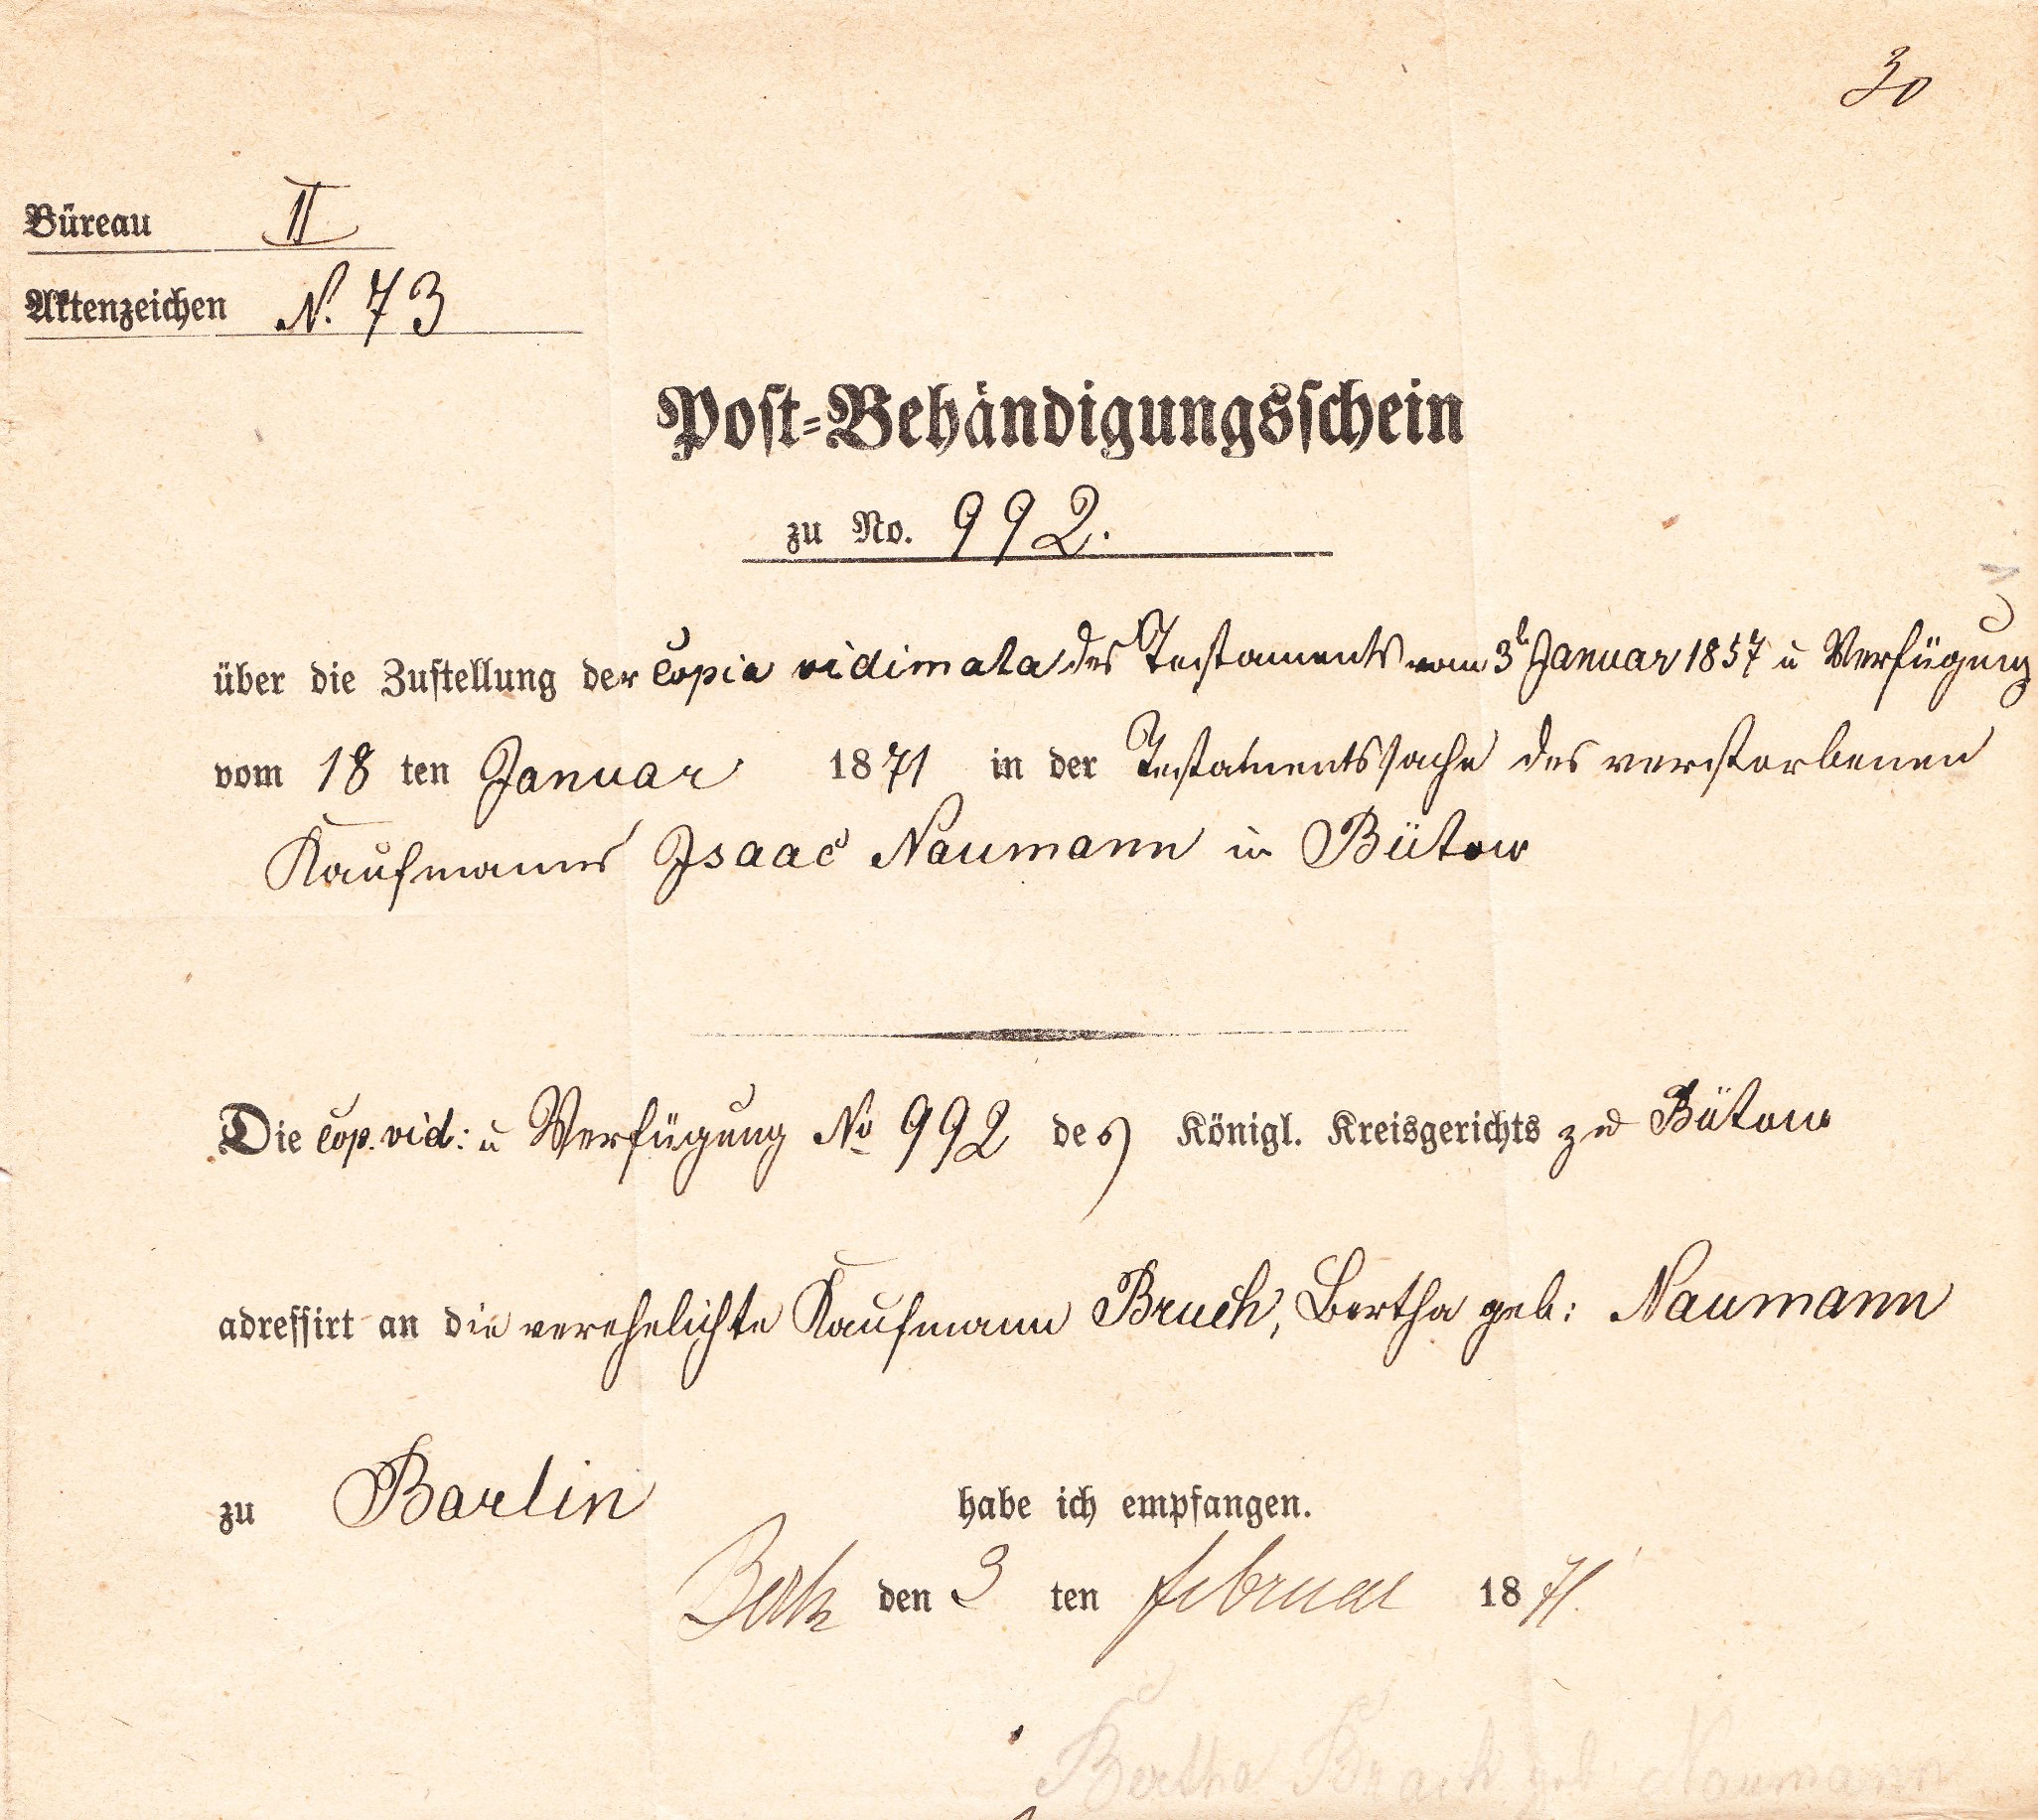 30
Büreau II
Aktenzeichen N. 73
Post-Behändigungsschein
zu No. 992.
über die Zustellung der Copia vidimata des Testaments vom 3t Januar 1857 u Verfügung
vom 18 ten Januar 1871 in der Testamentssache des verstorbenen
Kaufmanns Isaac Naumann in Bütow
Die Cop. vid: u Verfügung No 992 des Königl. Kreisgerichts zu Bütow
adressirt an die verehelichte Kaufmann Bruck, Bertha geb: Naumann
zu Berlin habe ich empfangen.
den 3 ten Februar 1871.
Bertha Bruck geb. Naumann